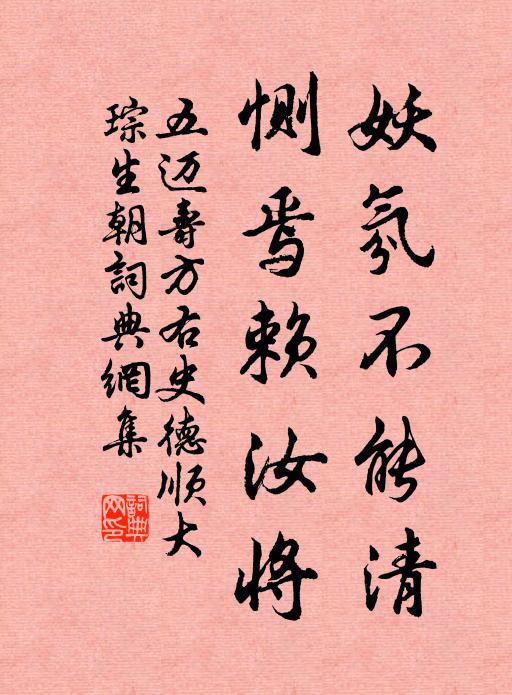 妖氛不能清
恻焉赖汝将
五迈寿方右史德顺大
琮生朝詞典網集
詞典网印